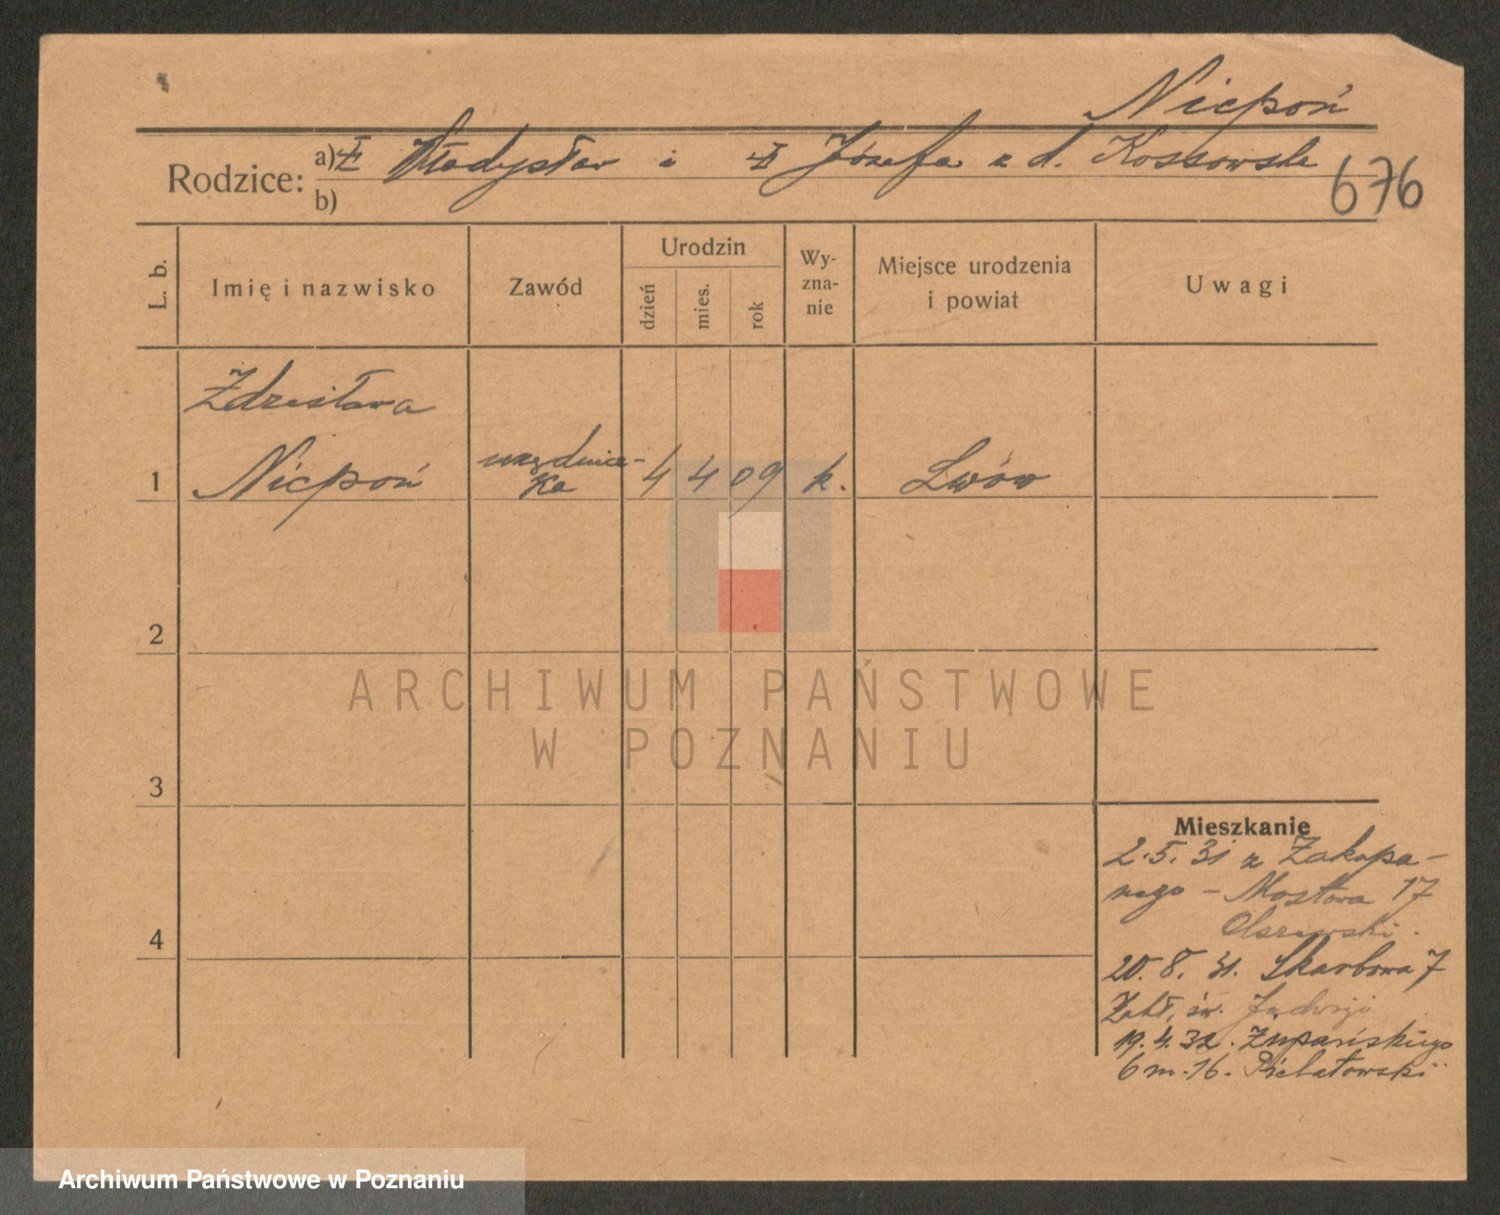 Nicpoń
Rodzice: a) Władysław i Józefa z d. Kossowska
b)
676
L. b. Imię i nazwisko Zawód Urodzin dzień mies. rok Wy-zna-nie Miejsce urodzenia i powiat Uwagi
Zdzisława
1 Nicpoń urzędnicz-ka 4 4 09 k. Lwów
2
ARCHIWUM PAŃSTWOWE
W POZNANIU
3
Mieszkanie
2.5.31 z Zakopa-
nego - Mostowa 17
Olszewski.
4
20.8.31. Skarbowa 7
Zakł. św. Jadwigi
19.4.32. Żupańskiego
6 m. 16.
Archiwum Państwowe w Poznaniu